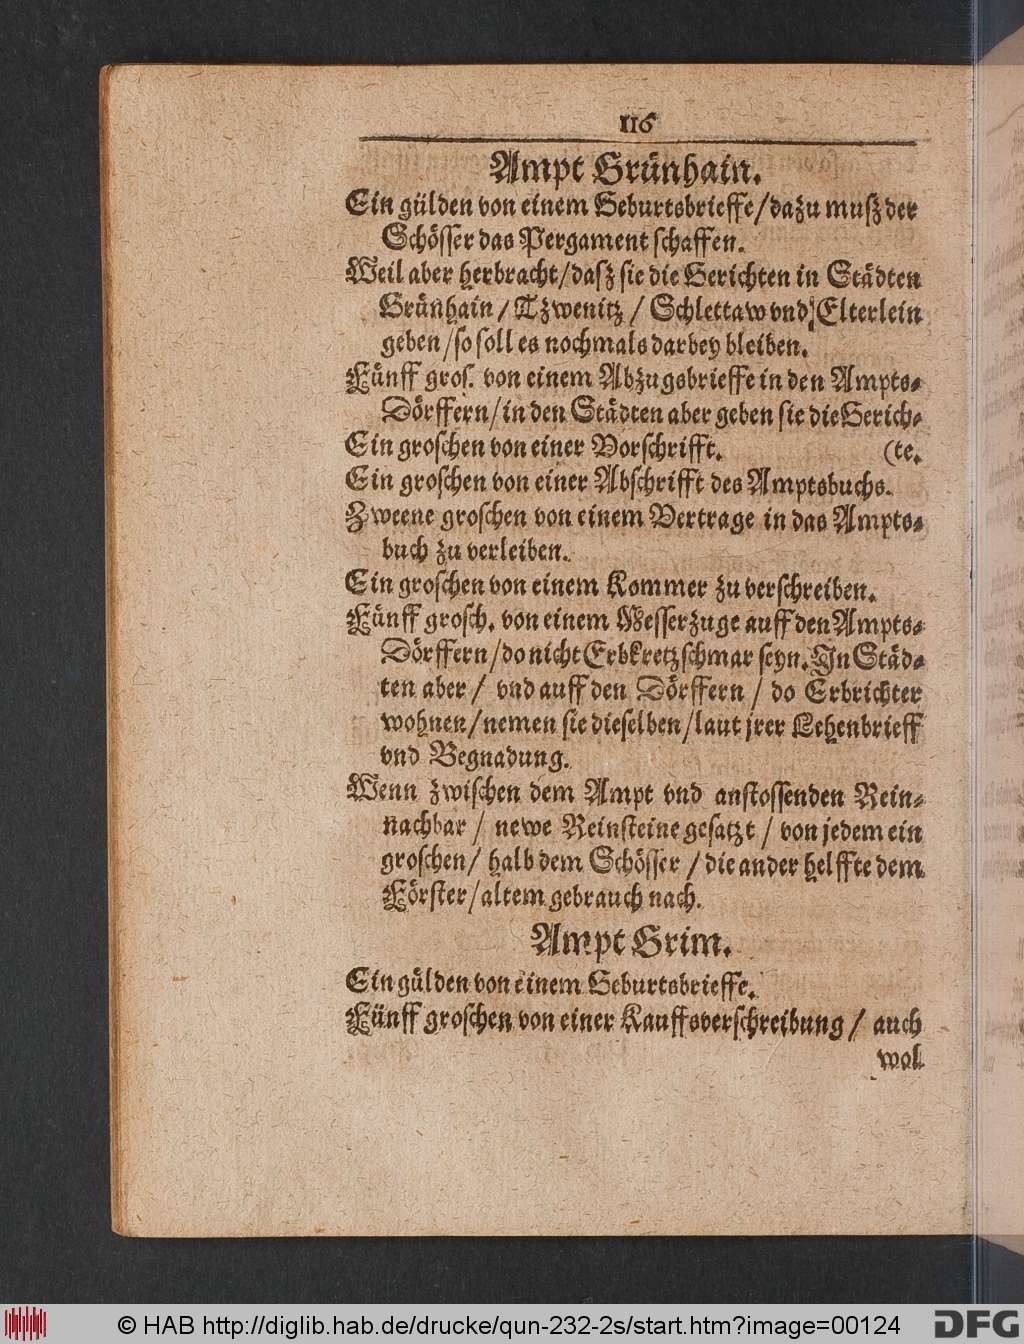 116
Ampt Grünhain.
Ein gülden von einem Geburtsbrieffe/dazu muß der
Schösser das Pergament schaffen.
Weil aber herbracht/daß sie die Gerichten in Städten
Grünhain/Tzwenitz/Schlettaw vnd Elterlein
geben/so soll es nochmals darbey bleiben.
Fünff gros. von einem Abzugsbrieffe in den Ampts-
Dörffern/in den Städten aber geben sie die Gerich-
Ein groschen von einer Vorschrifft. (te.
Ein groschen von einer Abschrifft des Amptsbuchs.
Zweene groschen von einem Vertrage in das Ampts-
buch zu verleiben.
Ein groschen von einem Kommer zu verschreiben.
Fünff grosch. von einem Messerzuge auff den Ampts-
Dörffern/do nicht Erbkretzschmar seyn. In Städ-
ten aber/ vnd auff den Dörffern/ do Erbrichter
wohnen/nemen sie dieselben/laut jrer Lehenbrieff
vnd Begnadung.
Wenn zwischen dem Ampt vnd anstossenden Rein-
nachbar/ newe Reinsteine gesatzt/ von jedem ein
groschen/ halb dem Schösser/die ander helffte dem
Förster/altem gebrauch nach.
Ampt Grim.
Ein gülden von einem Geburtsbrieffe.
Fünff groschen von einer Kauffsverschreibung/ auch
wol
© HAB http://diglib.hab.de/drucke/qun-232-2s/start.htm?image=00124
DFG